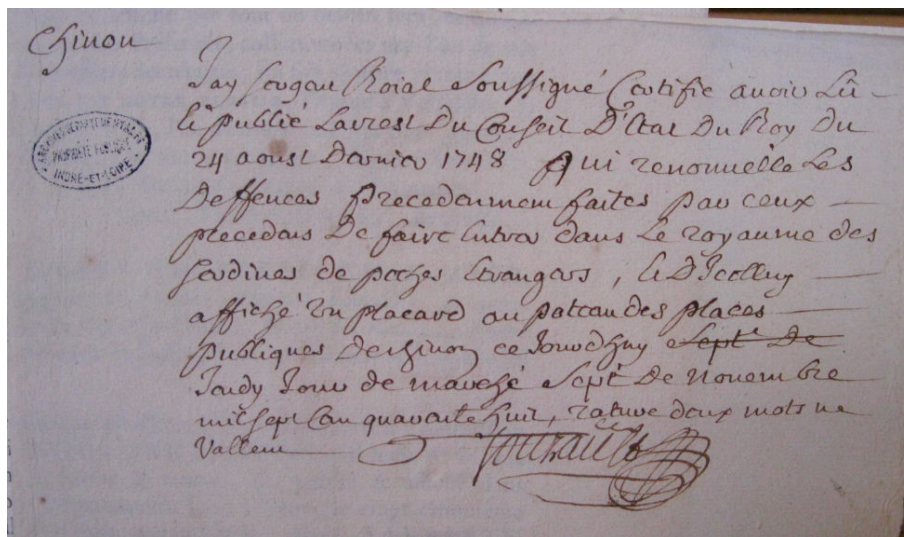 Chinon
Jay Sergent Roial Soussigné Certifie avoir Lû
& publié Larrest Du Conseil D'Etat Du Roy Du
24 aoust Dernier 1748 Qui renouvelle Les
Deffences precedemment faites par ceux
precedens De faire Entrer dans Le royaume des
Sardines de peches Etrangers, & D'Icelluy
affiché un placard au potteau des places
publiques De chinon ce Jourdhuy Sept.e De
Jeudy Jour de marché Sept.e De Novembre
mil Sept Cen quarante huit, rature deux mots ne
Vallent
ARCHIVES DEPARTEMENTALES
PROPRIÉTÉ PUBLIQUE
INDRE-ET-LOIRE